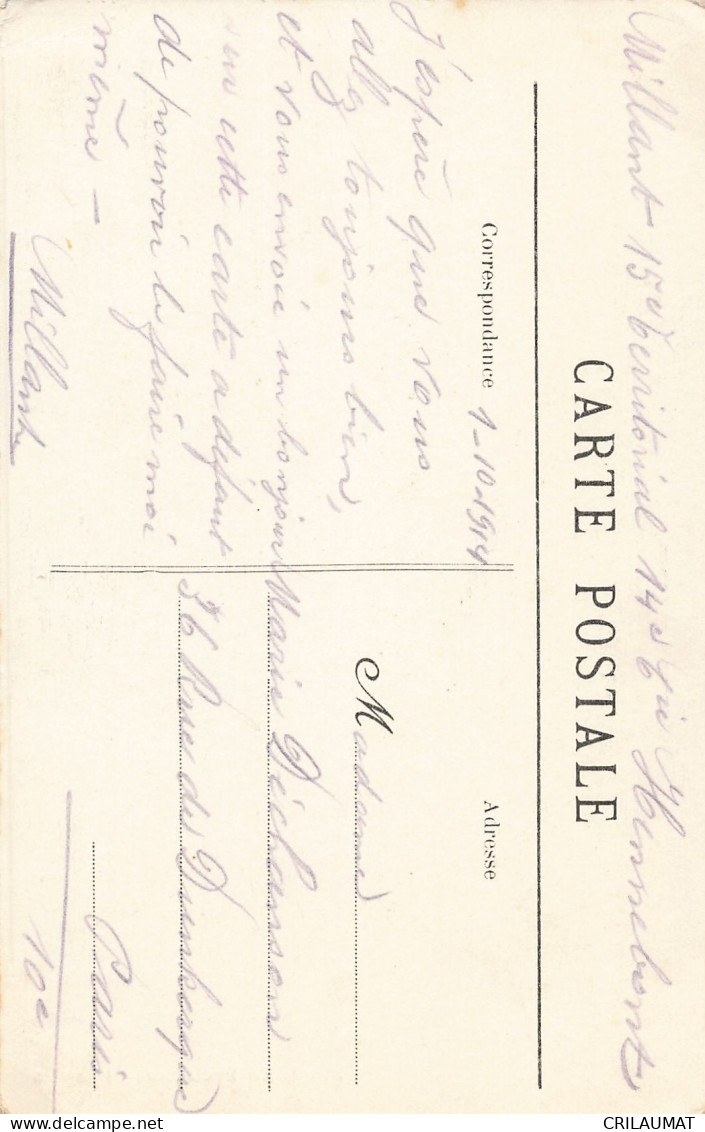 Millant 15e territorial 14e Cie Hennebont
CARTE POSTALE
Correspondance
Adresse
1-10-1914
J'espère que vous
allez toujours bien,
et vous envoie un bonjour
sur cette carte a défaut
de pouvoir le faire moi
même -
Millant
Madame
Marie
36 Rue de Dunkerque
Paris
10e
CRILAUMAT